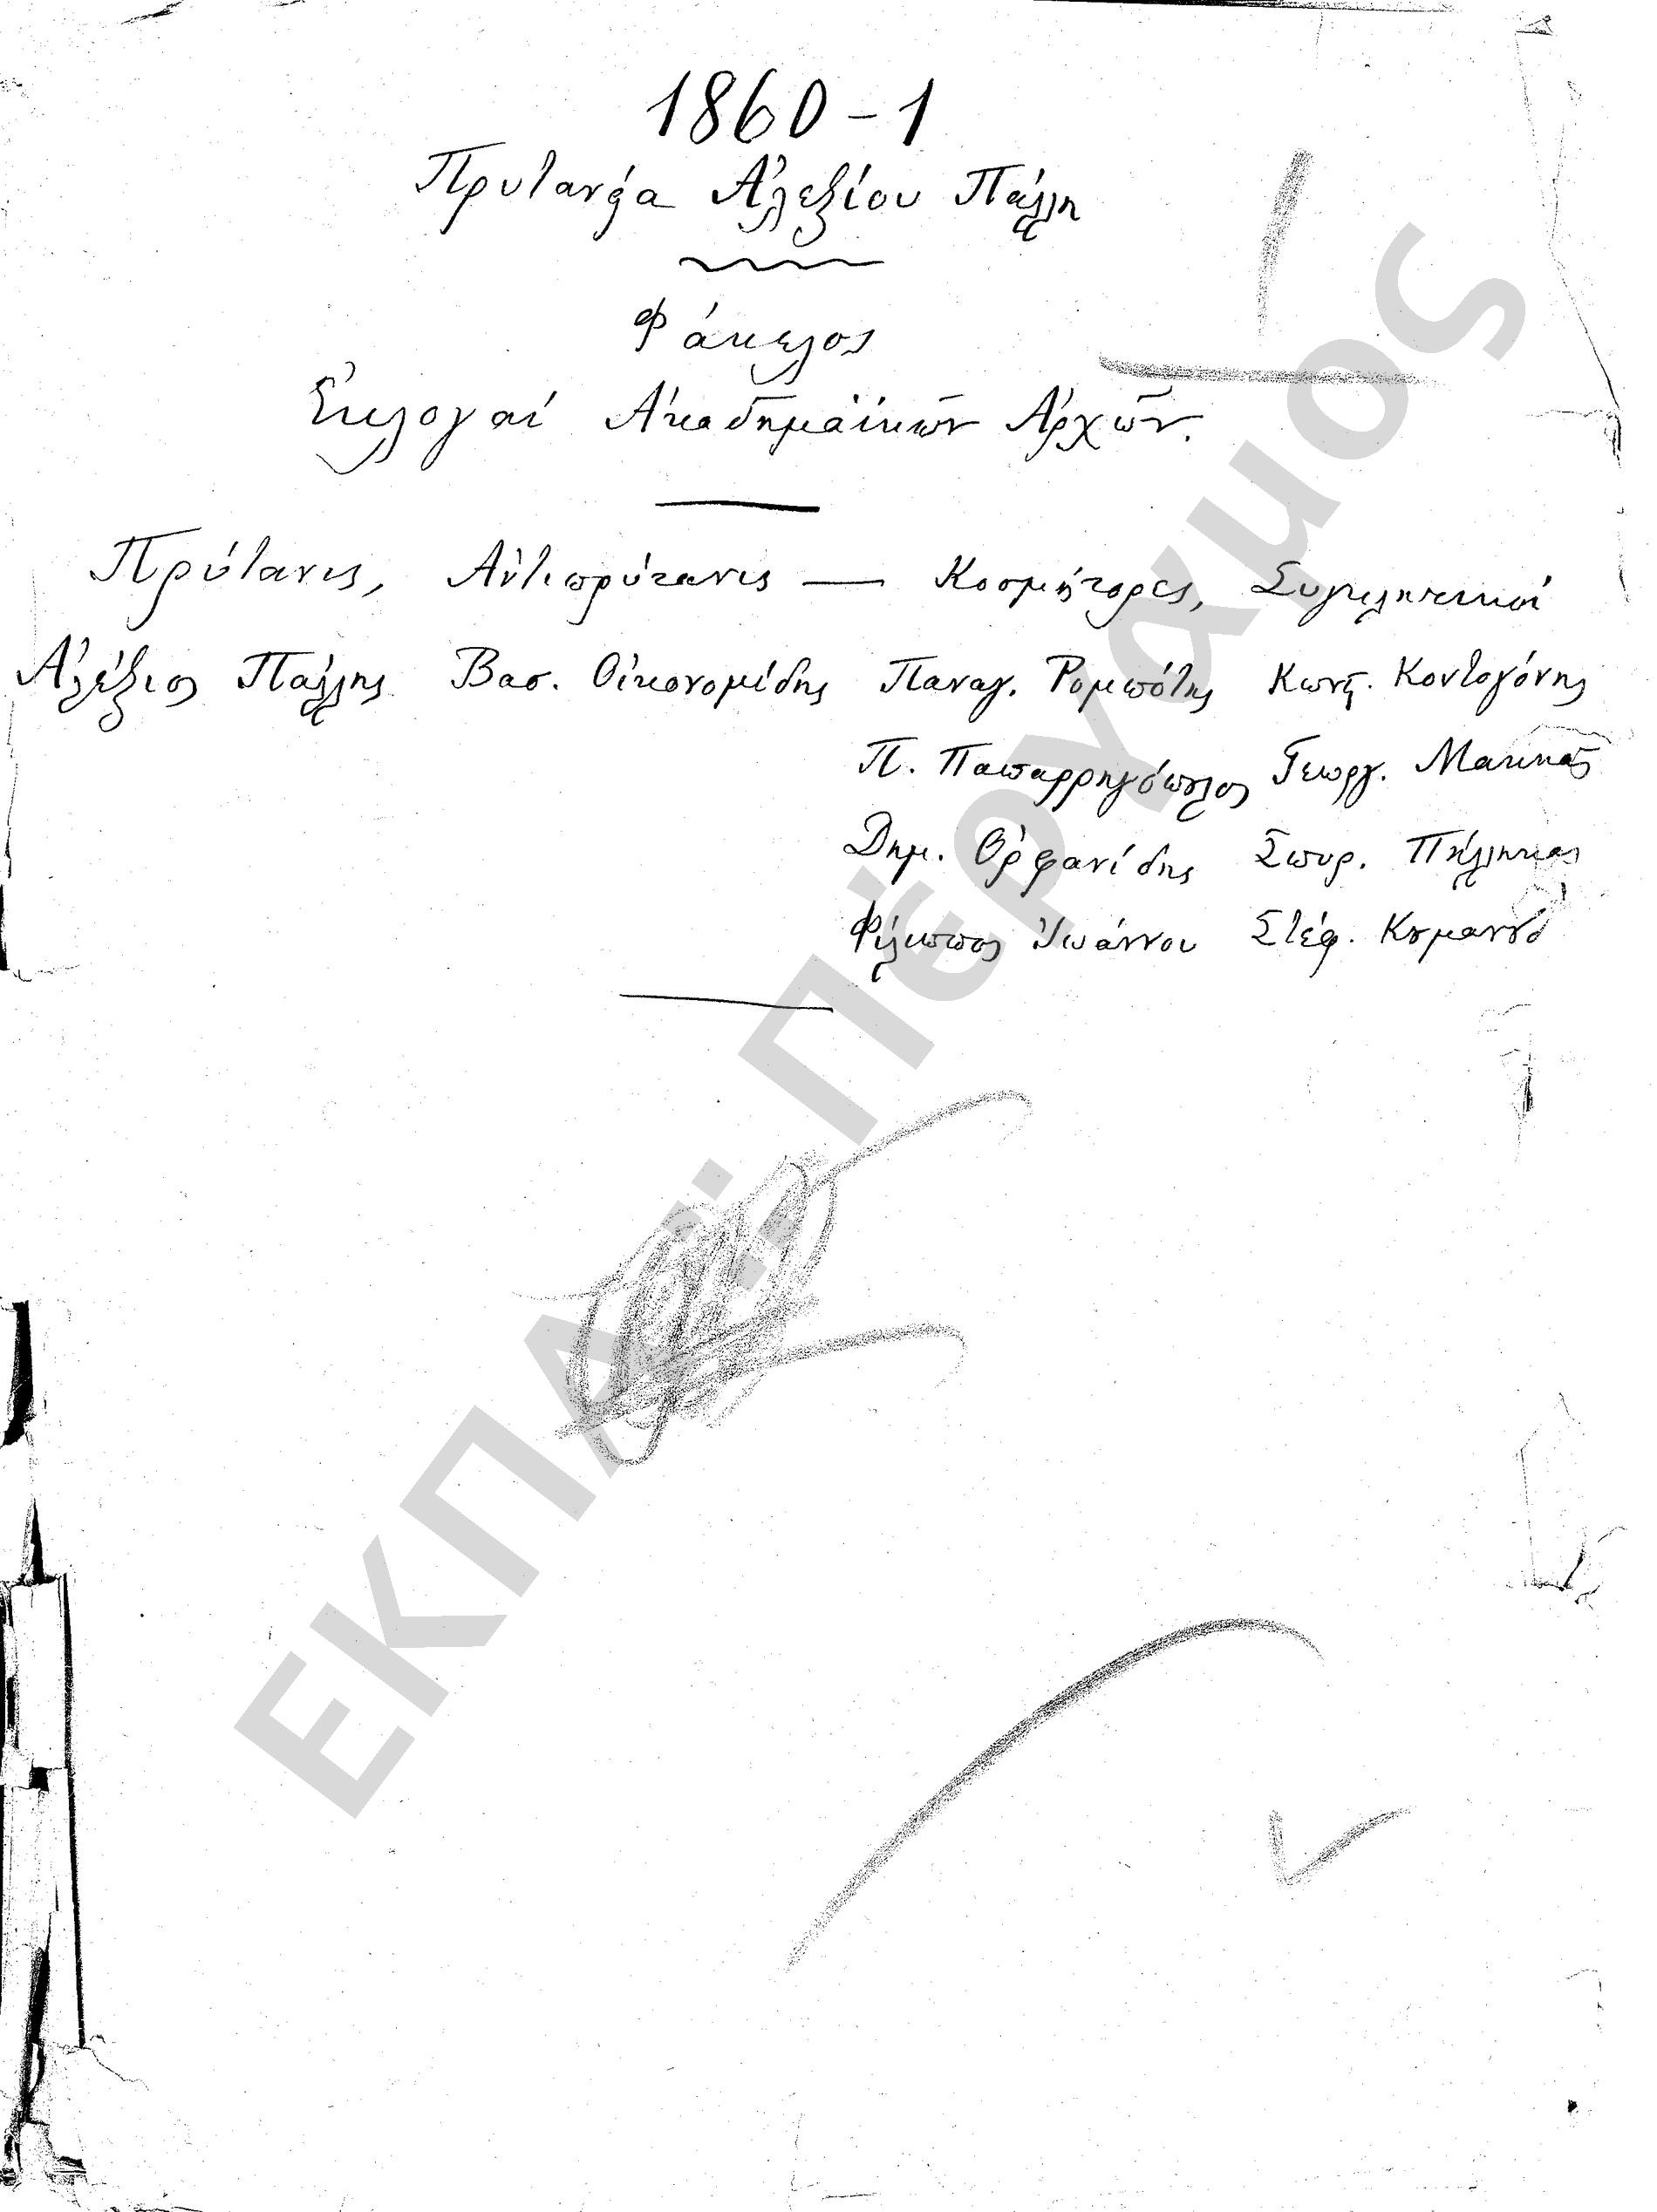 1860-1
Πρυτανεία Ἀλεξίου Πάλλη
Φάκελος
Ἐκλογαί Ἀκαδημαϊκῶν Ἀρχῶν.
Πρύτανις, Ἀντιπρύτανις — Κοσμήτορες, Συγκλητικοί
Ἀλέξιος Πάλλης Βασ. Οἰκονομίδης Παναγ. Ρομπότης Κωνστ. Κοντογόνης
Π. Παπαρρηγόπουλος Γεωργ. Μακκᾶς
Δημ. Ὀρφανίδης Σπυρ. Πήλληκας
Φίλιππος Ἰωάννου Στέφ. Κουμανού
ΕΚΠΑ: Πέργαμος